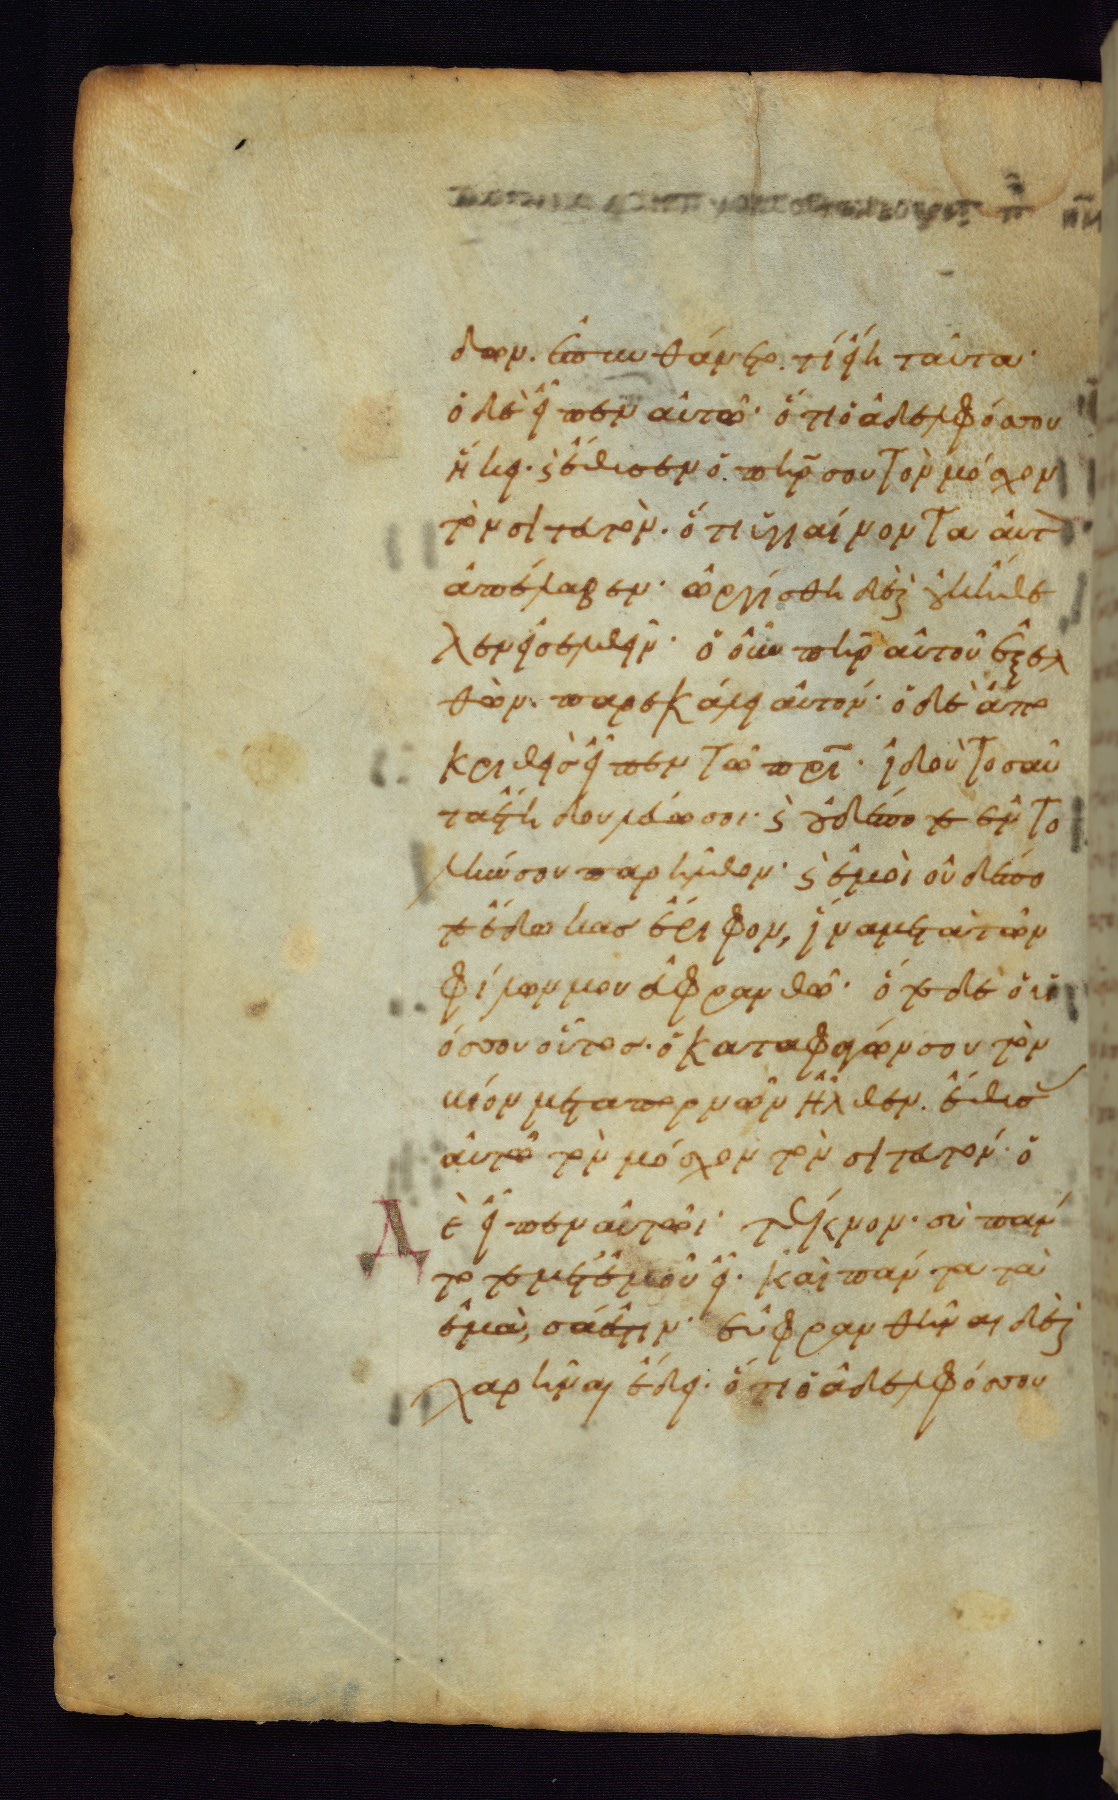 δων. ἐπυνθάνετο. τί εἴη ταῦτα·
ὁ δὲ εἶπεν αὐτῶ· ὅτι ὁ ἀδελφός σου
ἥκει. καὶ ἔθυσεν ὁ π̅η̅ρ̅ σου τὸν μόσχον
τὸν σιτευτὸν. ὅτι ὑγιαίνοντα αὐτὸν
ἀπέλαβεν· ὠργίσθη δὲ καὶ οὐκ ἤθε
λεν εἰσελθεῖν· ὁ οὖν π̅η̅ρ̅ αὐτοῦ ἐξελ
θὼν. παρεκάλει αὐτόν· ὁ δὲ ἀπο
κριθεὶς εἶπεν τῶ π̅ρ̅ι̅· ἰδοὺ τοσαῦ
τα ἔτη δουλεύω σοι. καὶ οὐδέποτε ἐντο
λήν σου παρῆλθον· καὶ ἐμοὶ οὐδέπο
τε ἔδωκας ἔριφον, ἵνα μετὰ τῶν
φίλων μου εὐφρανθῶ· ὅτε δὲ ὁ υἱ
ός σου οὗτος. ὁ καταφαγών σου τὸν
βίον μετὰ πορνῶν ἦλθεν. ἔθυσας
αὐτῶ τὸν μόσχον τὸν σιτευτόν· ὁ
Δὲ εἶπεν αὐτῶ· τέκνον. σὺ πάν
τοτε μετ' ἐμοῦ εἶ. καὶ πάντα τὰ
ἐμὰ, σά ἐστιν· εὐφρανθῆναι δὲ καὶ
χαρῆναι ἔδει. ὅτι ὁ ἀδελφός σου